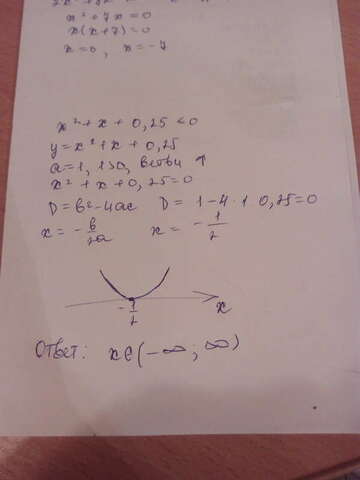 x² + 7x = 0
x(x+7) = 0
x = 0, x = -7
x² + x + 0,25 < 0
y = x² + x + 0,25
a = 1, 1>0, ветви ↑
x² + x + 0,25 = 0
D = в² - 4ac D = 1 - 4 · 1 0,25 = 0
x = - в/2a x = - 1/2
- 1/2
x
Ответ: x ∈ (-∞; ∞)